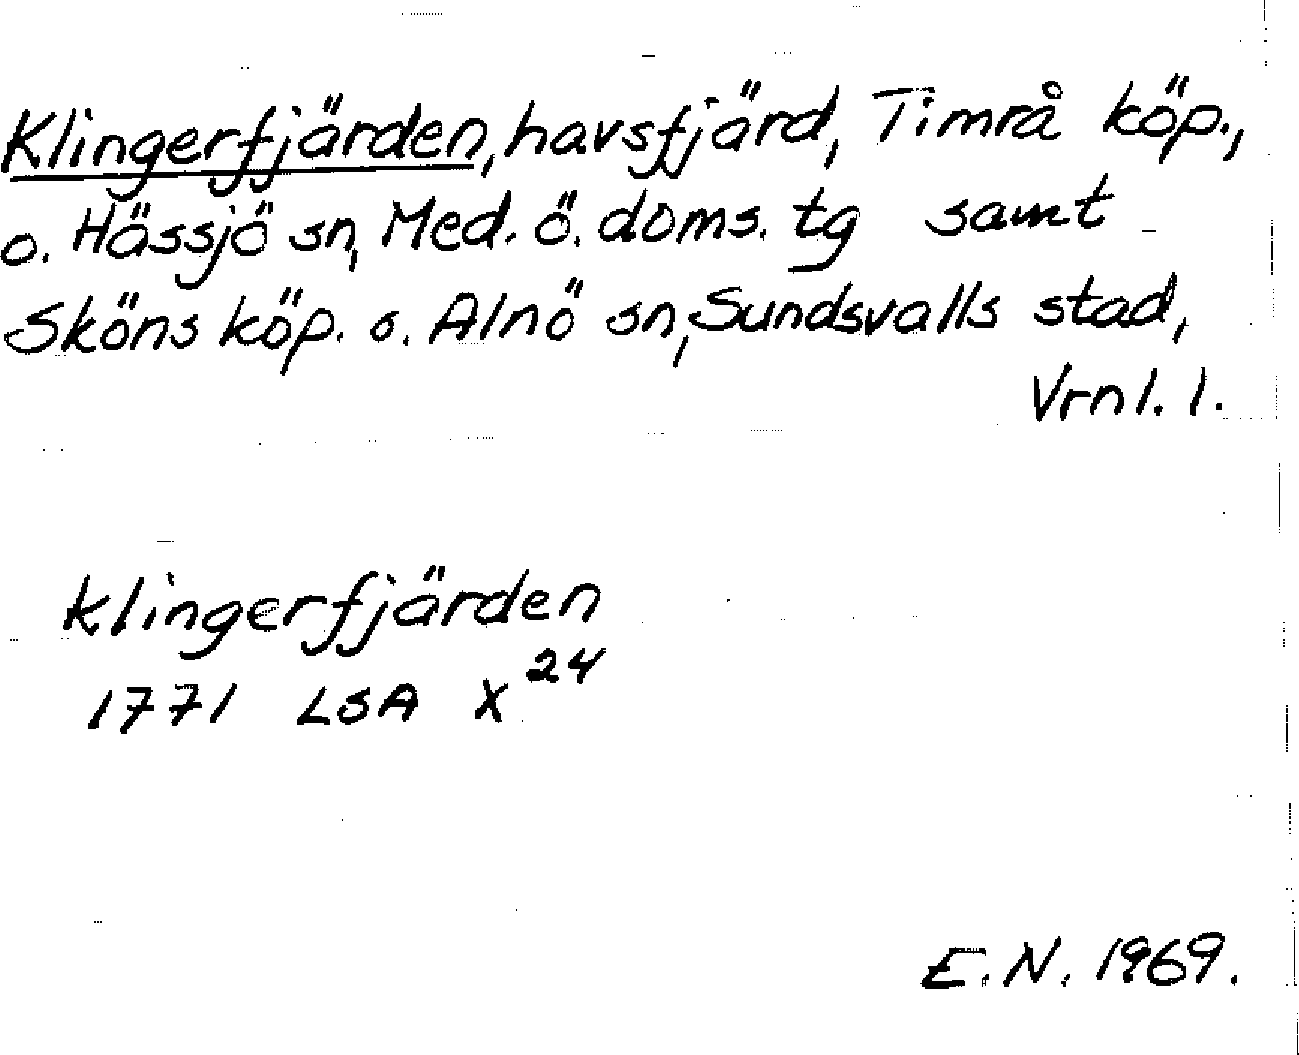 Klingerfjärden, havsfjärd, Timrå köp.,
o. Hässjö sn, Med. ö. doms. tg samt
Sköns köp. o. Alnö sn, Sundsvalls stad,
Vrnl. l.
klingerfjärden
1771 LSA X 24
E.N. 1969.